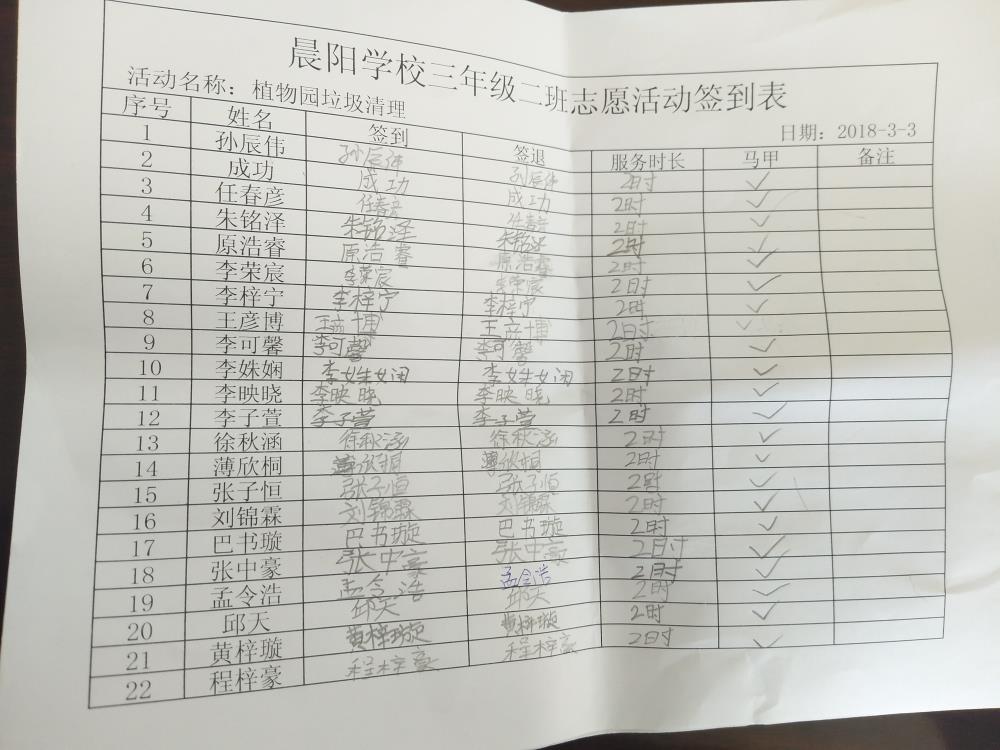 晨阳学校三年级二班志愿活动签到表
活动名称：植物园垃圾清理 日期：2018-3-3
序号 姓名 签到 签退 服务时长 马甲 备注
1 孙辰伟 孙辰伟 孙辰伟 2时 ✓
2 成功 成功 成功 2时 ✓
3 任春彦 任春彦 任春彦 2时 ✓
4 朱铭泽 朱铭泽 朱铭泽 2时 ✓
5 原浩睿 原浩睿 原浩睿 2时 ✓
6 李荣宸 李荣宸 李荣宸 2时 ✓
7 李梓宁 李梓宁 李梓宁 2时 ✓
8 王彦博 王彦博 王彦博 2时 ✓
9 李可馨 李可馨 李可馨 2时 ✓
10 李姝娴 李姝娴 李姝娴 2时 ✓
11 李映晓 李映晓 李映晓 2时 ✓
12 李子萱 李子萱 李子萱 2时 ✓
13 徐秋涵 徐秋涵 徐秋涵 2时 ✓
14 薄欣桐 薄欣桐 薄欣桐 2时 ✓
15 张子恒 张子恒 张子恒 2时 ✓
16 刘锦霖 刘锦霖 刘锦霖 2时 ✓
17 巴书璇 巴书璇 巴书璇 2时 ✓
18 张中豪 张中豪 张中豪 2时 ✓
19 孟令浩 孟令浩 孟令浩 2时 ✓
20 邱天 邱天 邱天 2时 ✓
21 黄梓璇 黄梓璇 黄梓璇 2时 ✓
22 程梓豪 程梓豪 程梓豪 2时 ✓